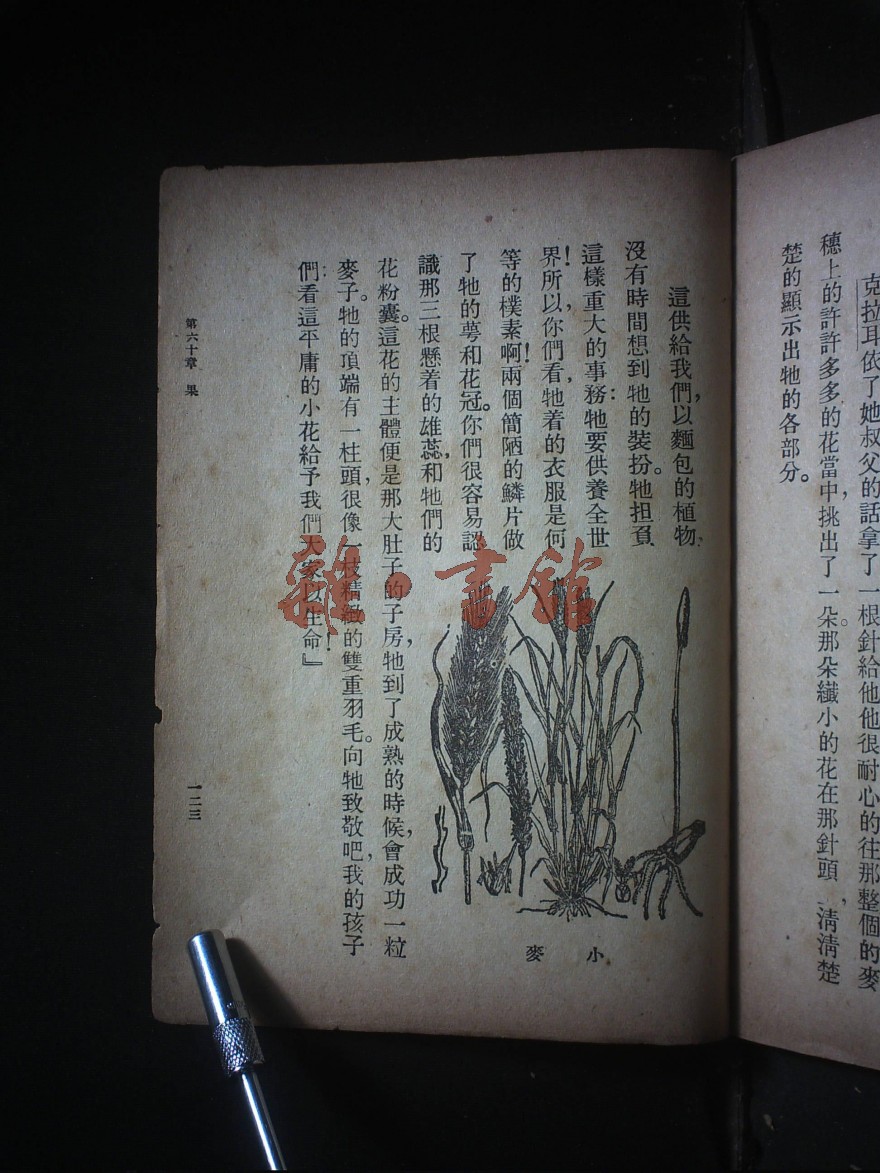 克拉耳依了她叔父的話，拿了一根針給他。他很耐心的往那整個的麥
穗上的許許多多的花當中，挑出了一朵。那朵纖小的花在那針頭，清清楚
楚的顯示出牠的各部分。
這供給我們，以麵包的植物，
沒有時間想到牠的裝扮。牠担負
這樣重大的事務：牠要供養全世
界！所以，你們看，牠着的衣服是何
等的樸素啊！兩個簡陋的鱗片做
了牠的萼和花冠。你們很容易認
識那三根懸着的雄蕊，和牠們的
花粉囊。這花的主體便是那大肚子的子房，牠到了成熟的時候，會成功一粒
麥子。牠的頂端有一柱頭，很像一枝精緻的雙重羽毛。向牠致敬吧，我的孩子
們：看這平庸的小花給予我們大家以生命！』
小麥
第六十章 果
一二三
雜·書館